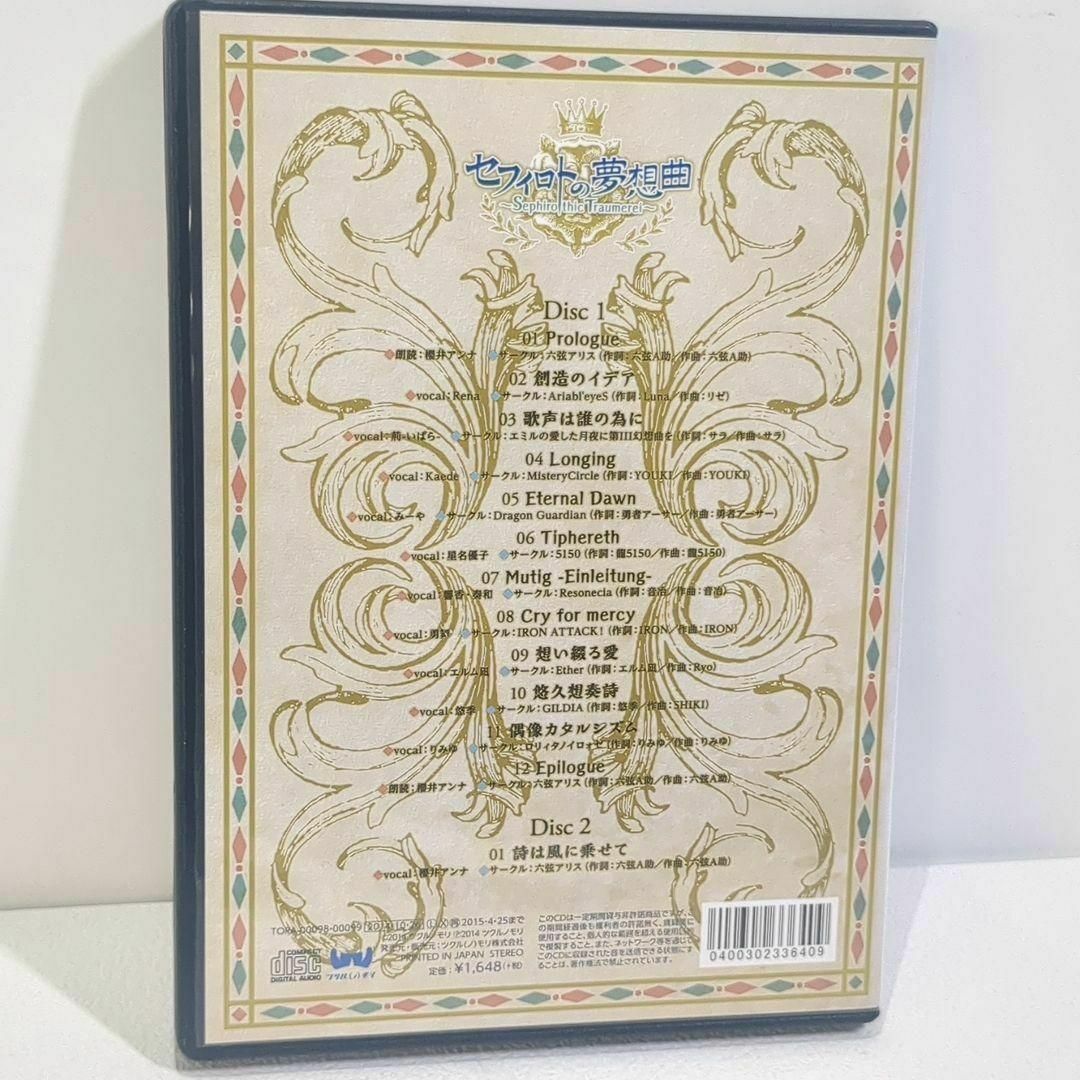 セフィロトの夢想曲
～Sephirothic Traumerei～
Disc 1
01 Prologue
朗読：櫻井アンナ サークル：六弦アリス (作詞：六弦A助／作曲：六弦A助)
02 創造のイデア
vocal：Rena サークル：Ariabl'eyeS (作詞：Luna／作曲：リゼ)
03 歌声は誰の為に
vocal：荊-いばら- サークル：エミルの愛した月夜に第III幻想曲を (作詞：サラ／作曲：サラ)
04 Longing
vocal：Kaede サークル：MisteryCircle (作詞：YOUKI／作曲：YOUKI)
05 Eternal Dawn
vocal：みーや サークル：Dragon Guardian (作詞：勇者アーサー／作曲：勇者アーサー)
06 Tiphereth
vocal：星名優子 サークル：5150 (作詞：龍5150／作曲：龍5150)
07 Mutig -Einleitung-
vocal：響香・奏和 サークル：Resonecia (作詞：音冶／作曲：音冶)
08 Cry for mercy
vocal：勇 サークル：IRON ATTACK! (作詞：IRON／作曲：IRON)
09 想い綴る愛
vocal：エルム凪 サークル：Ether (作詞：エルム凪／作曲：Ryo)
10 悠久想奏詩
vocal：悠季 サークル：GILDIA (作詞：悠季／作曲：SHIKI)
11 偶像カタルシズム
vocal：りみゆ サークル：ロリィタノイロォゼ (作詞：りみゆ／作曲：りみゆ)
12 Epilogue
朗読：櫻井アンナ サークル：六弦アリス (作詞：六弦A助／作曲：六弦A助)
Disc 2
01 詩は風に乗せて
vocal：櫻井アンナ サークル：六弦アリス (作詞：六弦A助／作曲：六弦A助)
TORA-00098-00099 2014・10・26 L X 2015・4・25まで
©2014 ツクルノモリ ℗2014 ツクルノモリ
発売元・販売元：ツクル(ノ)モリ株式会社
PRINTED IN JAPAN STEREO
定価：¥1,648(+税)
COMPACT
disc
DIGITAL AUDIO
ツクル(ノ)モリ
このCDは一定期間貸与非許諾商品ですが、こ
の期間経過後も権利者の許諾無く、賃貸業に
使用すること、個人的な範囲を超える使用目的
で複製すること、また、ネットワーク等を通じて
このCDに収録された音を送信できる状態にす
ることは、著作権法で禁止されています。
0400302336409